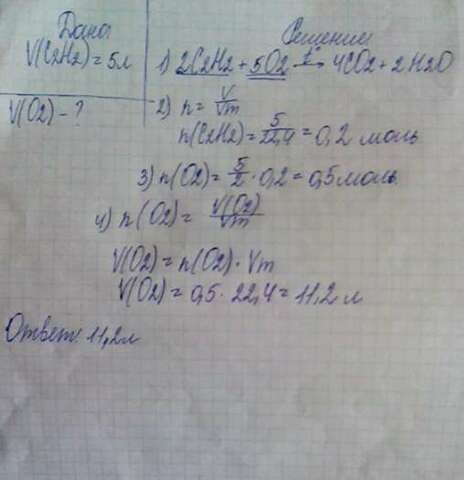 Дано
V(C2H2)=5л
V(O2)-?
Решение
1) 2C2H2+5O2 t°→ 4CO2+2H2O
2) n=V/Vm
n(C2H2)=5/22,4=0,2 моль
3) n(O2)=5/2·0,2=0,5моль
4) n(O2)=V(O2)/Vm
V(O2)=n(O2)·Vm
V(O2)=0,5·22,4=11,2 л
Ответ: 11,2л